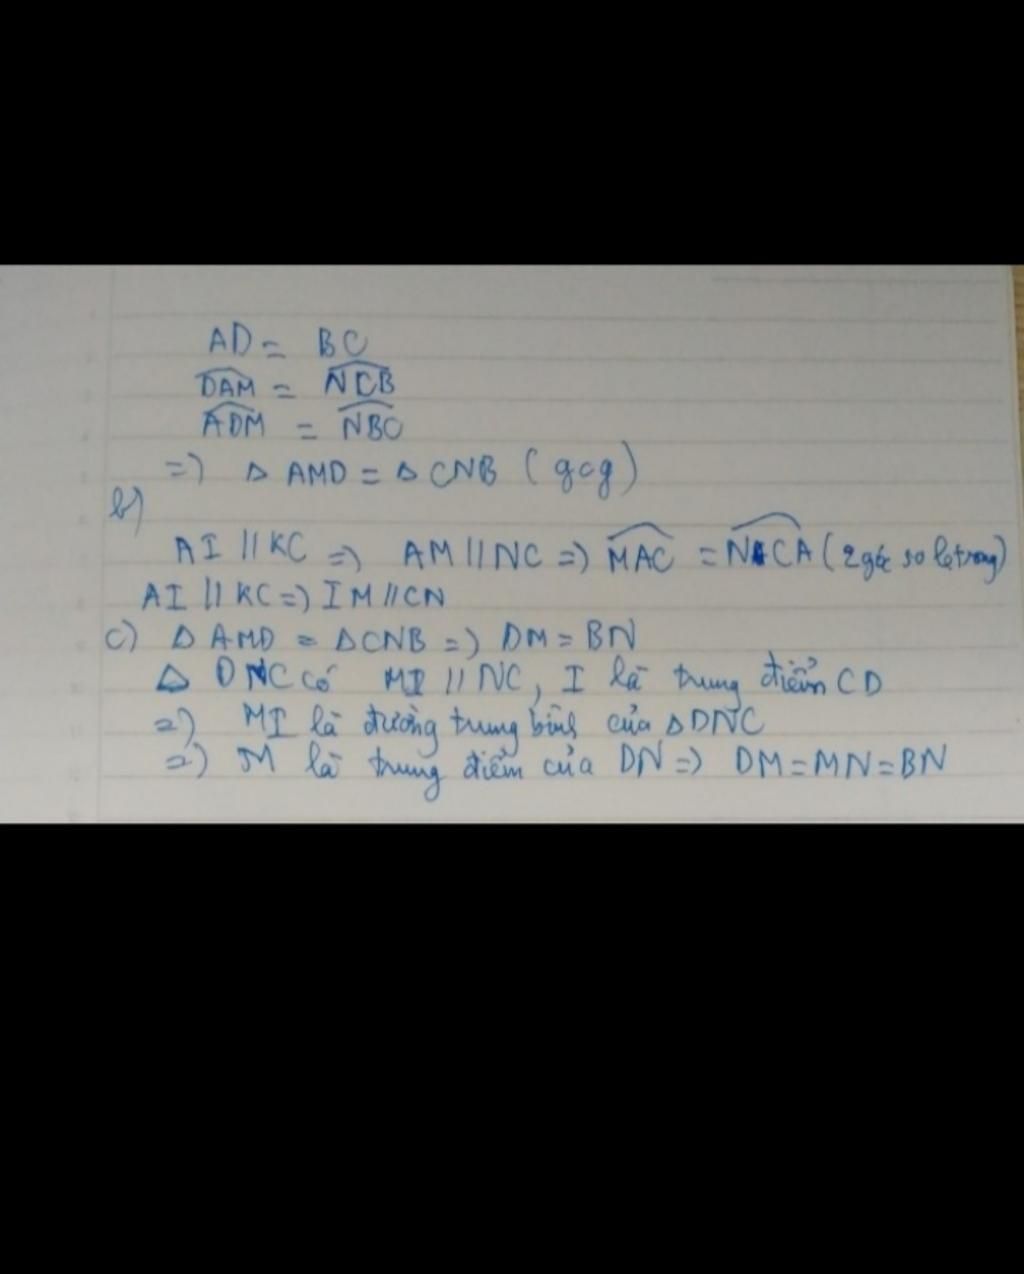 AD = BC
DAM = NCB
ADM = NBC
=> Δ AMD = Δ CNB (gcg)
b)
AI // KC => AM // NC => MAC = NCA (2 góc so le trong)
AI // KC => IM // CN
c) Δ AMD = Δ CNB => DM = BN
Δ DNC có MI // NC, I là trung điểm CD
=> MI là đường trung bình của Δ DNC
=> M là trung điểm của DN => DM = MN = BN